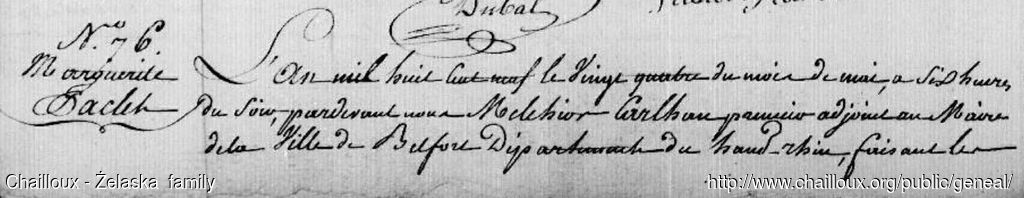 Dubat
N.° 76.
Marguerite
Paclet
L'An mil huit cent neuf le Vingt quatre du mois de mai, a Six heures
du Soir, pardevant nous Melchior Carlhau premier adjoint au Maire
dela Ville de Belfort Département du haud-rhin, faisant les
Chailloux - Żelaska family
http://www.chailloux.org/public/geneal/